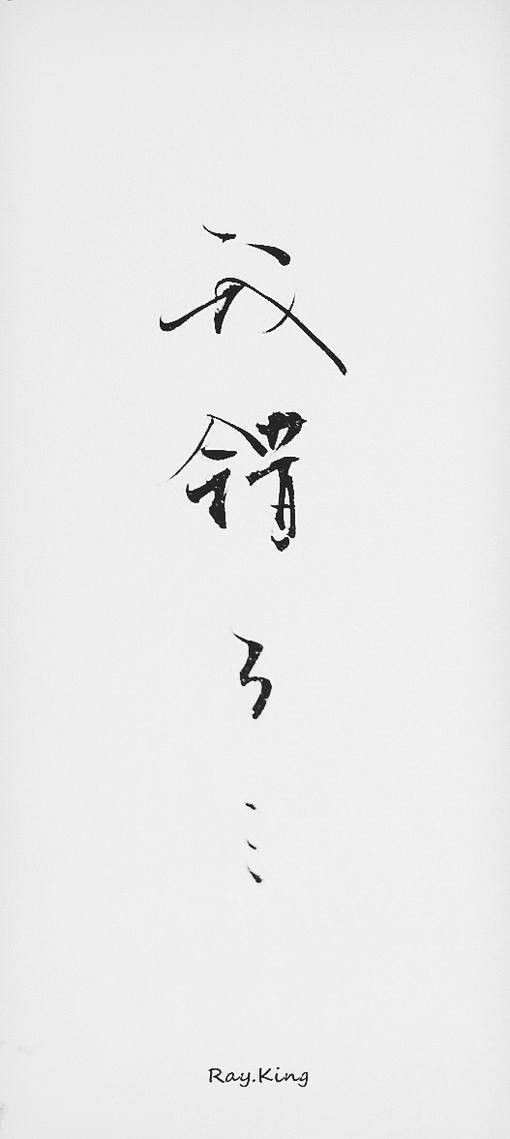 我错了…
Ray.King